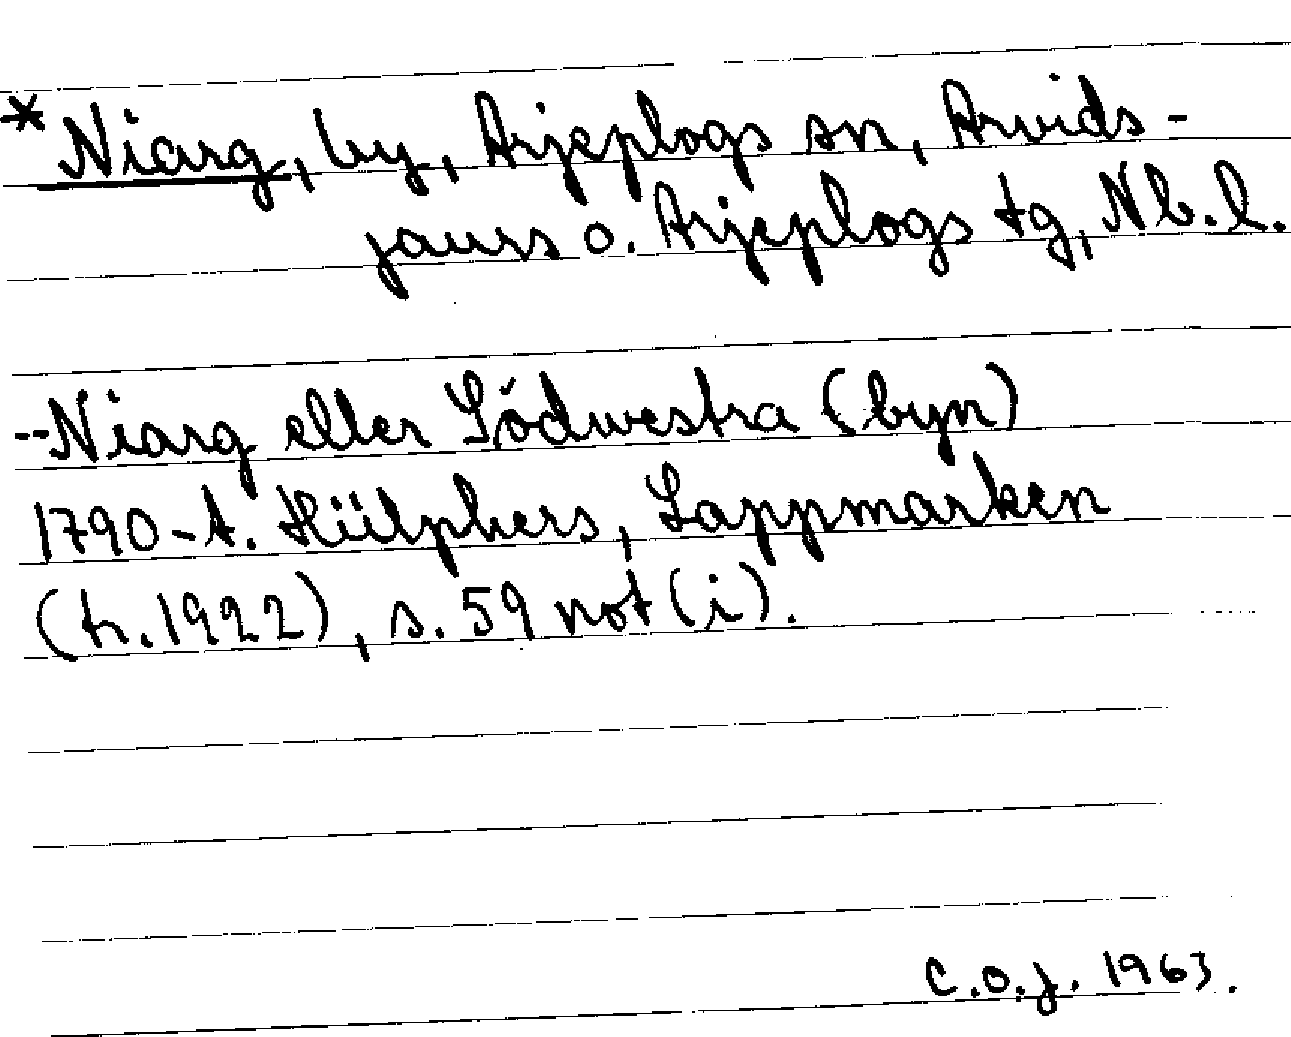 * Niarg, by, Arjeplogs sn, Arvids-
jaurs o. Arjeplogs tg, Nb.l.
--Niarg eller Södwestra (byn)
1790-A. Hülphers, Lappmarken
(tr. 1922), s. 59 not (i).
C.O.J. 1963.